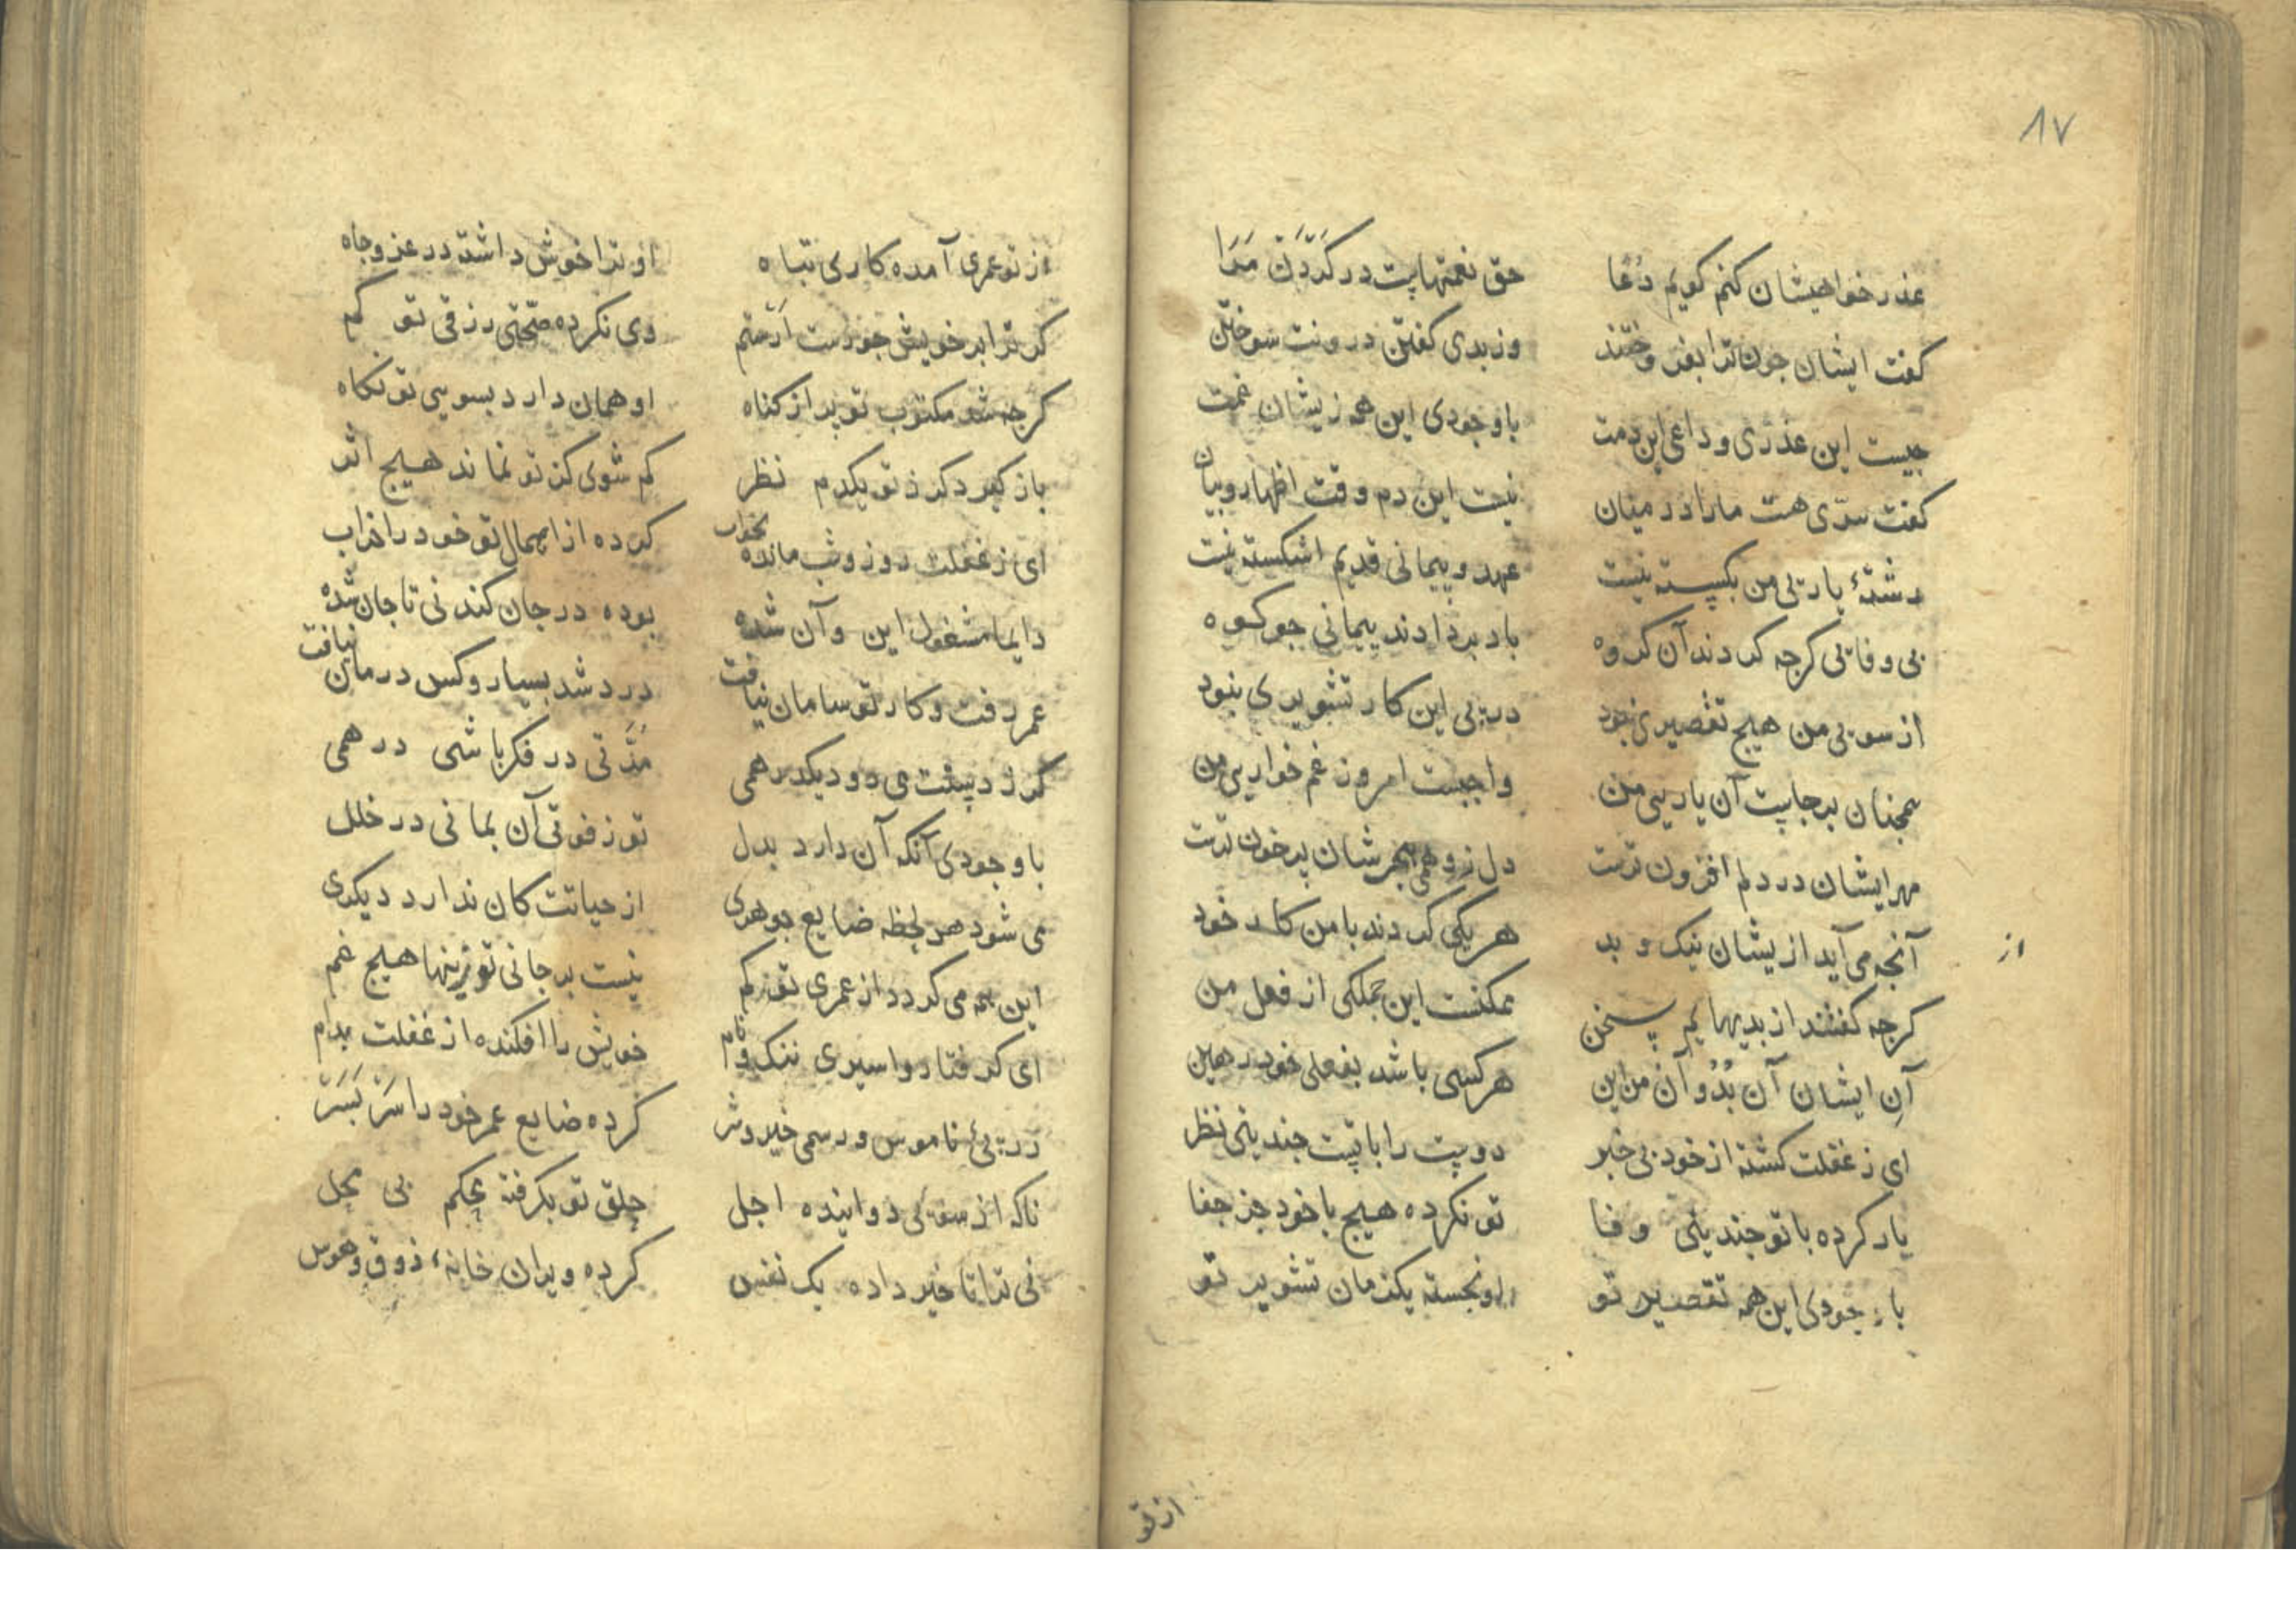 ٨٧
عذر خواهیشان کنم کویم دعا حق نعمتهایت در کردن مرا
کفت ایشان جون ترا بفروختند وز بدی کفتن درونت سوختن
جیست این عذری و داعی این دمت باوجودی این همه زیشان غمت
کفت سری هست مارا در میان نیست این دم وقت اظهار و بیان
رشتهٔ یاریی من بکسسته نیست عهد و پیمانی قدیم اشکسته نیست
بی وفایی کرجه کردند آن کروه باد بر دادند پیمانی جو کوه
از سویی من هیج تقصیری نبود در پی این کار تشویری نبود
همجنان برجایست آن یاریی من واجبست امروز غم خواریی من
مهر ایشان در دلم افزون ترست دل ز هجرشان پر خون ترست
آنجه می آید از یشان نیک و بد هر یکی کردند با من کار خود
از
کرجه کفتند از بدیهایم سخن ممکنست این جملکی از فعل من
آن ایشان آن بد و آن من این هر کسی باشد بفعلی خود رهین
ای ز غفلت کشته از خود بی خبر دوست را با تست جندینی نظر
یار کرده با تو جندینی وفا تو نکرده هیج با خود جز جفا
با وجودی این همه تقصیر تو او نجسته یکزمان تشویر تو
از تو
از تو عمری آمده کاری تباه او ترا خوش داشته در عز و جاه
کر ترا بر خویش جورست ار ستم وی نکرده صحتی رزقی تو کم
کرجه شد مکتوب تو پر از کناه او همان دارد بسوسی تو نکاه
باز کیرد کر ز تو یکدم نظر کم شوی کز تو نماند هیج اثر
ای ز غفلت روز و شب مانده بخواب کرده از اهمال تو خود را خراب
دایما مشغول این و آن شده بوده در جان کندنی تا جان شده
عمر رفت و کار تو سامان نیافت درد شد بسیار و کس درمان نیافت
کر ز دستت می رود یکدرهمی مدتی در فکر باشی درهمی
با وجودی آنکه آن دارد بدل تو ز فوتی آن بمانی در خلل
می شود هر لحظه ضایع جوهری از حیاتت کان ندارد دیکری
این همه می کردد از عمری تو کم نیست بر جانی تو زینها هیج غم
ای کرفتار و اسیری ننک و نام خویش را افکنده از غفلت بدام
در پیٔ ناموس و رسمی خیر و شر کرده ضایع عمر خود را سر بسر
ناکه از سویی دوانیده اجل حلق تو بکرفته محکم بی محل
نی ترا تاخیر داده یک نفس کرده ویران خانهٔ ذوق و هوس